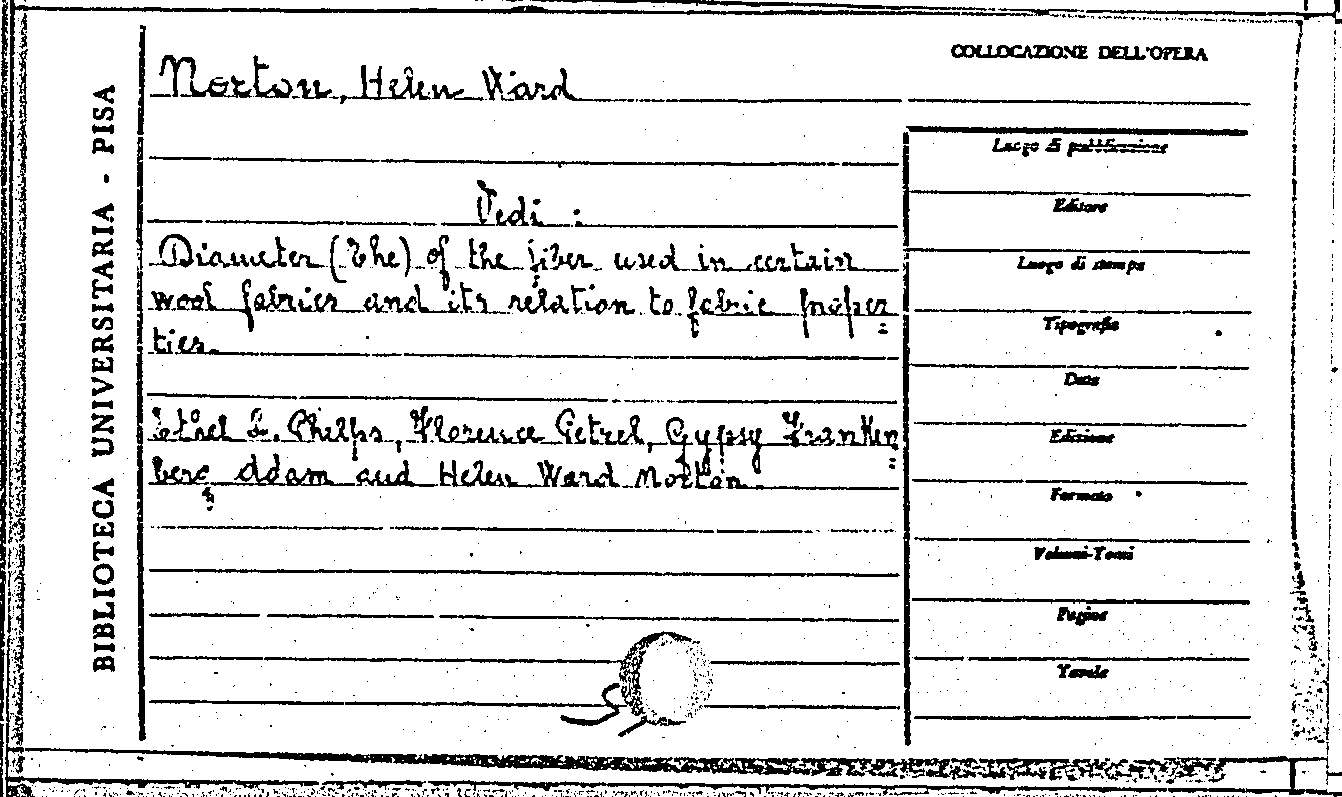 BIBLIOTECA UNIVERSITARIA - PISA
Norton, Helen Ward
Vedi :
Diameter (The) of the fiber used in certain
wool fabrics and its relation to fabric proper=
ties.
Ethel L. Phelps, Florence Petzel, Gypsy Franken=
berg Adam and Helen Ward Norton.
COLLOCAZIONE DELL'OPERA
Luogo di pubblicazione
Editore
Luogo di stampa
Tipografia
Data
Edizione
Formato
Volumi-Tomi
Pagine
Tavole